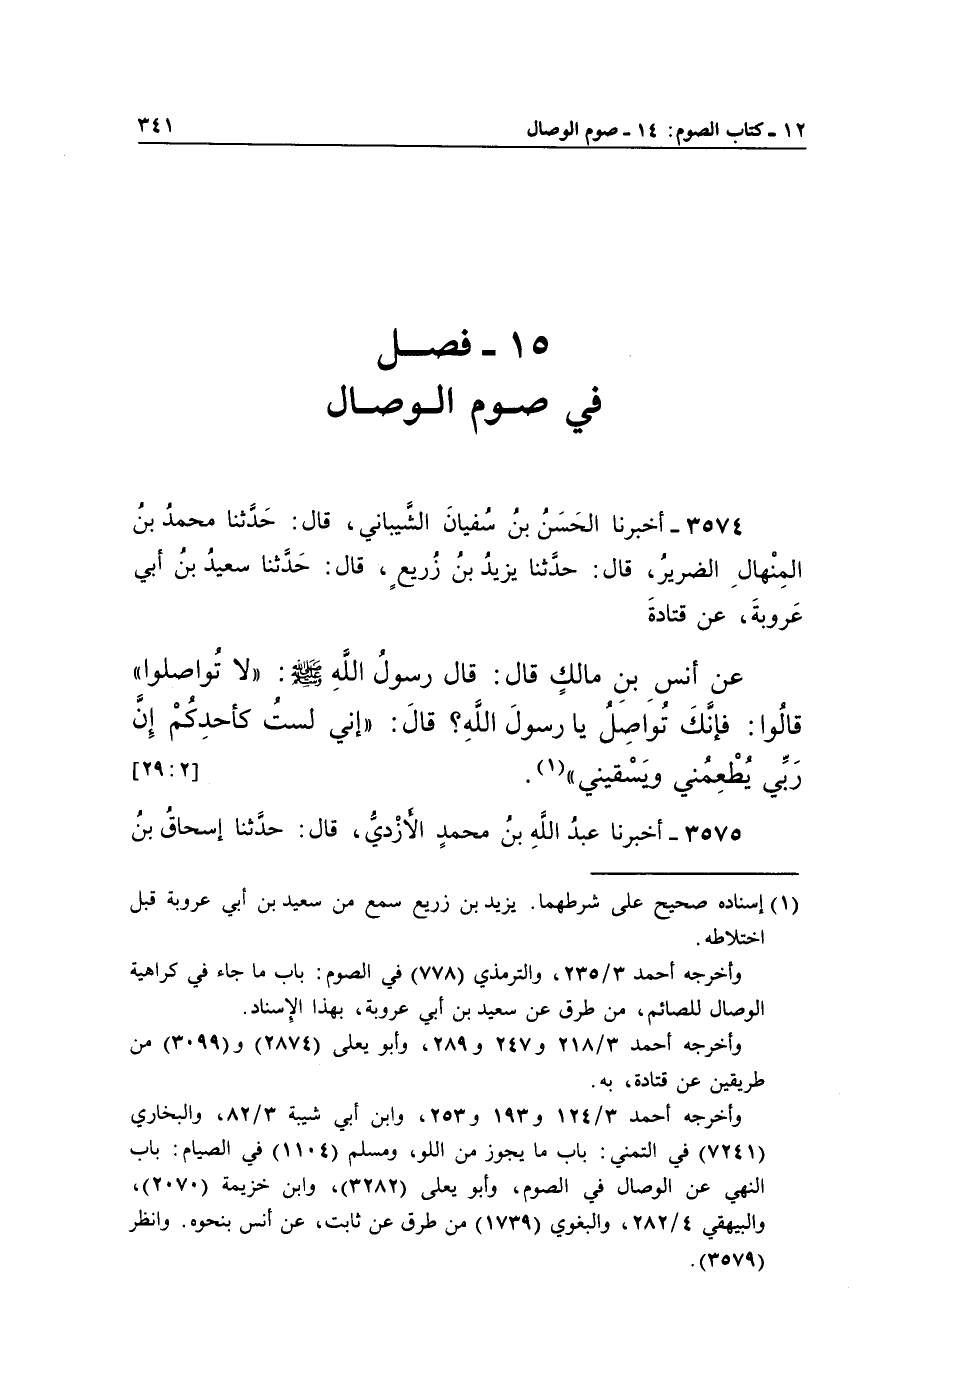 ١٢ ـ كتاب الصوم: ١٤ ـ صوم الوصال ٣٤١
١٥ ـ فصـــل
في صـوم الـوصـال
٣٥٧٤ ـ أخبرنا الحَسَنُ بنُ سُفيانَ الشَّيباني، قال: حَدَّثنا محمدُ بنُ
المِنْهالِ الضريرُ، قال: حدَّثنا يزيدُ بنُ زُريعٍ، قال: حَدَّثنا سعيدُ بنُ أبي
عَروبةَ، عن قتادةَ
عن أنسِ بنِ مالكٍ قال: قال رسولُ اللَّهِ ﷺ: «لا تُواصلوا»
قالُوا: فإنَّكَ تُواصِلُ يا رسولَ اللَّهِ؟ قالَ: «إني لستُ كأحدِكُمْ إنَّ
رَبِّي يُطْعِمُني ويَسْقيني»(١). [٢: ٢٩]
٣٥٧٥ ـ أخبرنا عبدُ اللَّهِ بنُ محمدٍ الأَزْديُّ، قال: حدَّثنا إسحاقُ بنُ
(١) إسناده صحيح على شرطهما. يزيد بن زريع سمع من سعيد بن أبي عروبة قبل
اختلاطه.
وأخرجه أحمد ٢٣٥/٣، والترمذي (٧٧٨) في الصوم: باب ما جاء في كراهية
الوصال للصائم، من طرق عن سعيد بن أبي عروبة، بهذا الإسناد.
وأخرجه أحمد ٢١٨/٣ و٢٤٧ و٢٨٩، وأبو يعلى (٢٨٧٤) و(٣٠٩٩) من
طريقين عن قتادة، به.
وأخرجه أحمد ١٢٤/٣ و١٩٣ و٢٥٣، وابن أبي شيبة ٨٢/٣، والبخاري
(٧٢٤١) في التمني: باب ما يجوز من اللو، ومسلم (١١٠٤) في الصيام: باب
النهي عن الوصال في الصوم، وأبو يعلى (٣٢٨٢)، وابن خزيمة (٢٠٧٠)،
والبيهقي ٢٨٢/٤، والبغوي (١٧٣٩) من طرق عن ثابت، عن أنس بنحوه. وانظر
(٣٥٧٩).